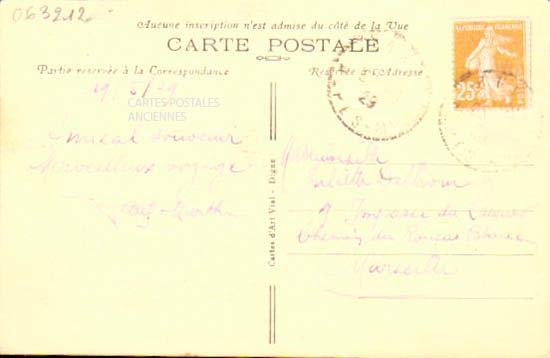 063212
Aucune inscription n'est admise du côté de la Vue
CARTE POSTALE
Partie réservée à la Correspondance
Réservée à l'Adresse
REPUBLIQUE FRANÇAISE
25c
29
19/5/29
CARTES-POSTALES
ANCIENNES
Amical souvenir
Merveilleux voyage
Marthe
Mademoiselle
Juliette
9 Impasse du
Chemin du Roucas Blanc
Marseille
Cartes d'Art Vial - Digne